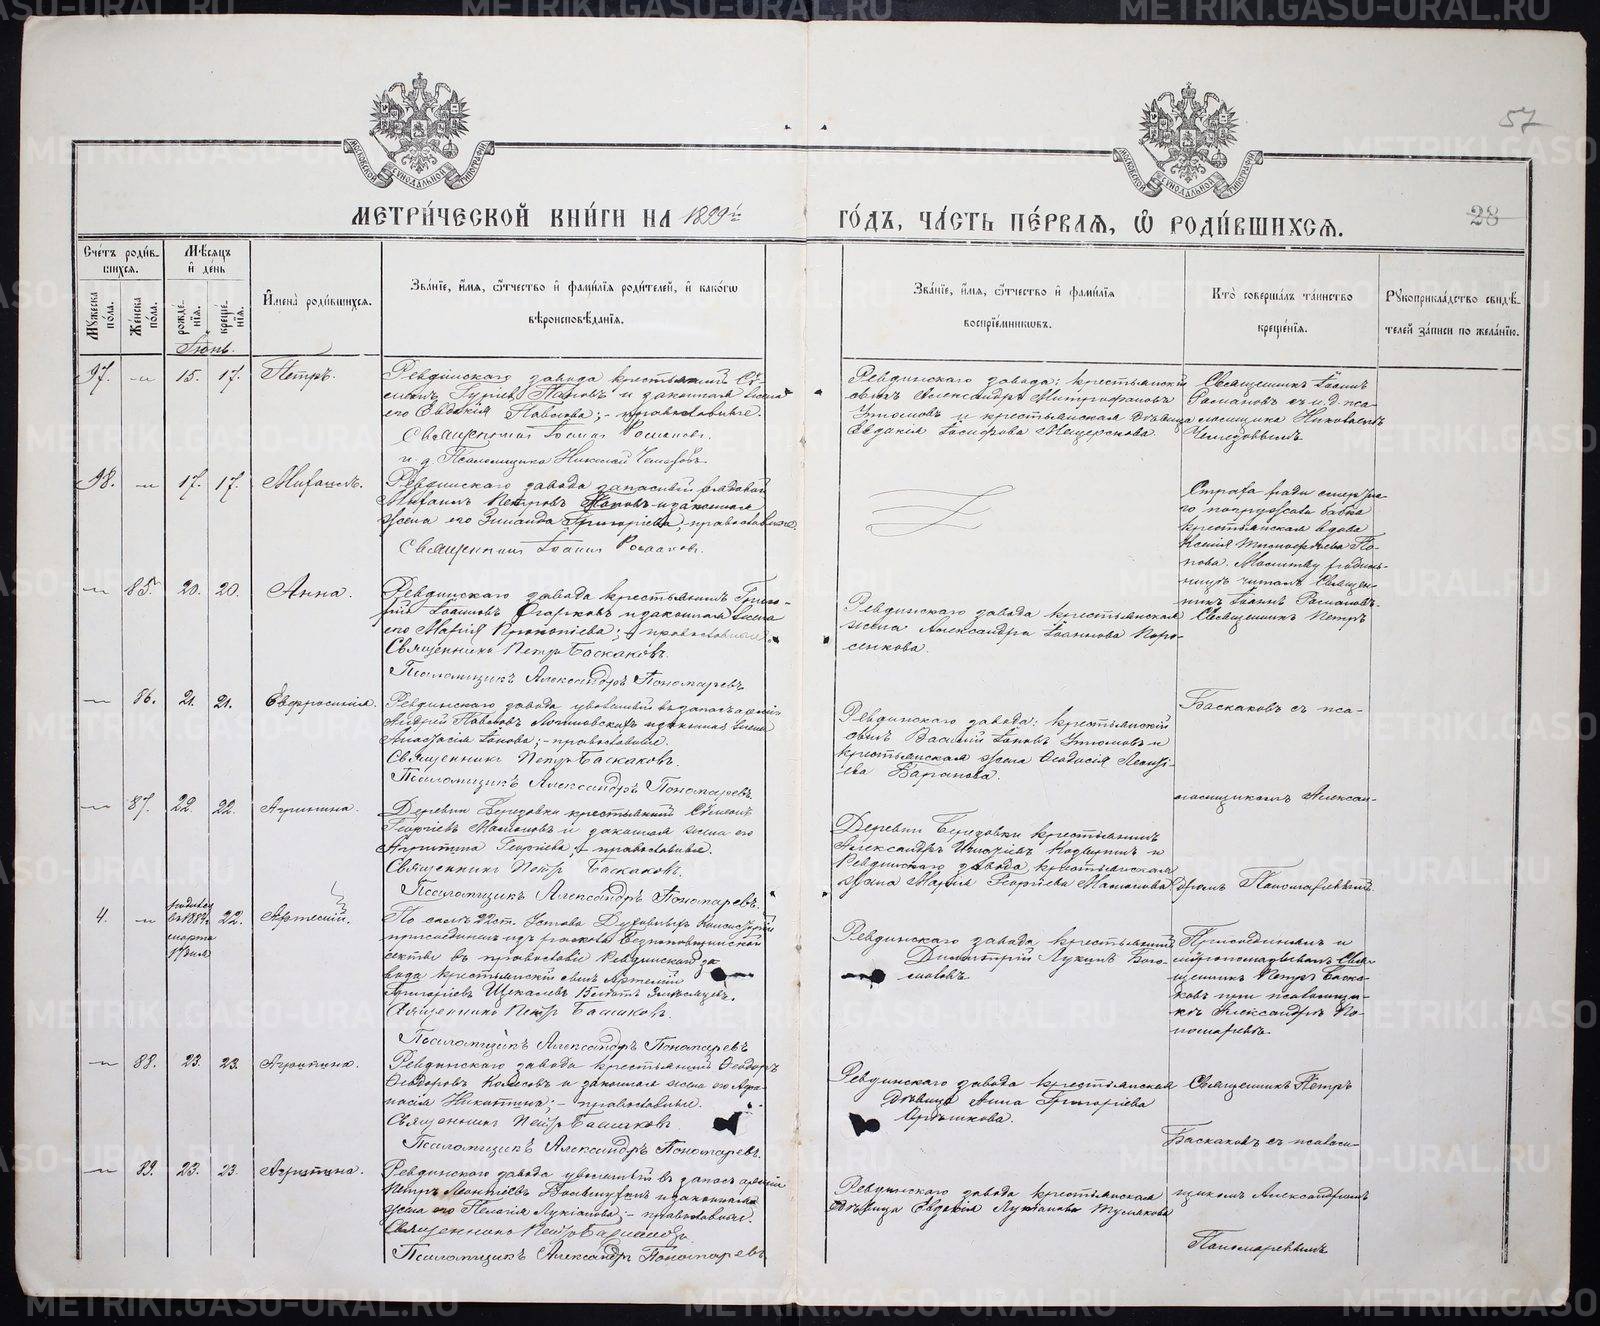 57
МОСКОВСКОЙ СУНОДАЛЬНОЙ ТИПОГРАФІИ
МОСКОВСКОЙ СУНОДАЛЬНОЙ ТИПОГРАФІИ
МЕТРИ́ЧЕСКОЙ КНИ́ГИ НА 1899й
ГО́ДЪ, ЧА́СТЬ ПЕ́РВАѦ, Ѽ РОДИ́ВШИХСѦ.
28
Сче́тъ роди́вшихсѧ.
Мꙋ́жеска по́ла.
Же́нска по́ла.
Мѣ́сѧцъ и҆ де́нь
рожде́нїѧ.
креще́нїѧ.
Іюнь.
И҆мена̀ роди́вшихсѧ.
Зва́нїе, и҆́мѧ, ѻ҆́тчество и҆ фами́лїѧ роди́телей, и҆ како́гѡ вѣроисповѣ́данїѧ.
Зва́нїе, и҆́мѧ, ѻ҆́тчество и҆ фами́лїѧ воспрїе́мникѡвъ.
Кто̀ соверша́лъ та́инство креще́нїѧ.
Рꙋкоприкла́дство свидѣ́телей за́писи по жела́нїю.
97. —„— 15. 17. Петръ.
Ревдинскаго завода крестьянинъ
его Евдокія Павлова; – православные.
Священникъ Іоаннъ Романовъ.
и. д. Псаломщика Николай
Ревдинскаго завода: крестьянскій
сынъ Александръ Митрофановъ
Утюмовъ и крестьянская дѣвица
Евдокія Іосифова Мещерскова
Священникъ Іоаннъ
Романовъ съ и. д. пса-
ломщика Николаемъ
98. —„— 17. 17. Михаилъ.
Ревдинскаго завода запасный рядовой
Михаилъ Петровъ Поповъ и законная
жена его Зинаида Григоріева, православные.
Священникъ Іоаннъ Романовъ.
Страха ради смертна-
го погружала бабка
крестьянская вдова
Ксенія Тимофеева По-
пова. Молитву родиль-
ницѣ читалъ Священ-
никъ Іоаннъ Романовъ.
—„— 85. 20. 20. Анна.
Ревдинскаго завода крестьянинъ Григо-
рій Іоанновъ Огарковъ и законная жена
его Марія Прокопіева; – православные.
Священникъ Петръ Баскаковъ.
Псаломщикъ Александръ Пономаревъ
Ревдинскаго завода крестьянская
жена Александра Іоаннова Поро-
сенкова.
Священникъ Петръ
—„— 86. 21. 21. Евфросинія.
Ревдинскаго завода уволенный въ запасъ арміи
Андрей Павловъ Логиновскихъ и законная жена
Анастасія Іакова; – православные.
Священникъ Петръ Баскаковъ.
Псаломщикъ Александръ Пономаревъ.
Ревдинскаго завода: крестьянскій
сынъ Василій Іаковъ Утюмовъ и
крестьянская жена Ѳеодосія Леонті-
ева Баранова.
Баскаковъ съ пса-
—„— 87. 22. 22. Агрипина.
Деревни Бередовки крестьянинъ Симеонъ
Георгіевъ Мамоновъ и законная жена его
Агрипина Георгіева; – православные.
Священникъ Петръ Баскаковъ.
Псаломщикъ Александръ Пономаревъ.
Деревни Бередовки крестьянинъ
Александръ Игнатіевъ и
Ревдинскаго завода крестьянская
жена Марія Георгіева Мамонова
ломщикомъ Алексан-
дромъ Пономаревымъ
4. —„— родился въ 1884 г. марта 17 дня 22. Артемій.
По силѣ 22 ст. Устава Духовныхъ Консисторій
присоединенъ изъ раскола Безпоповщинской
секты въ православіе Ревдинскаго за-
вода крестьянскій сынъ Артемій
Григоріевъ Щекалевъ 15 лѣтъ 3 мѣсяцевъ.
Священникъ Петръ Баскаковъ.
Псаломщикъ Александръ Пономаревъ
Ревдинскаго завода крестьянинъ
Димитрій Лукинъ Бого-
моловъ
Присоединялъ и
мѵропомазывалъ Свя-
щенникъ Петръ Баска-
ковъ при псаломщи-
кѣ Александрѣ По-
номаревѣ.
—„— 88. 23. 23. Агрипина.
Ревдинскаго завода крестьянинъ Ѳеодоръ
Ѳеодоровъ Колесовъ и законная жена его Аѳа-
насія Никитина; – православные.
Священникъ Петръ Баскаковъ.
Псаломщикъ Александръ Пономаревъ.
Ревдинскаго завода крестьянская
дѣвица Анна Григоріева
Ярдышкова.
Священникъ Петръ
Баскаковъ съ псалом-
—„— 89. 23. 23. Агрипина.
Ревдинскаго завода уволенный въ запасъ арміи
Петръ Леонтіевъ и законная
жена его Пелагія Лукіанова; – православные.
Священникъ Петръ Баскаковъ.
Псаломщикъ Александръ Пономаревъ.
Ревдинскаго завода крестьянская
дѣвица Евдокія Лукіанова Тусмякова
щикомъ Александромъ
Пономаревымъ
METRIKI.GASO-URAL.RU